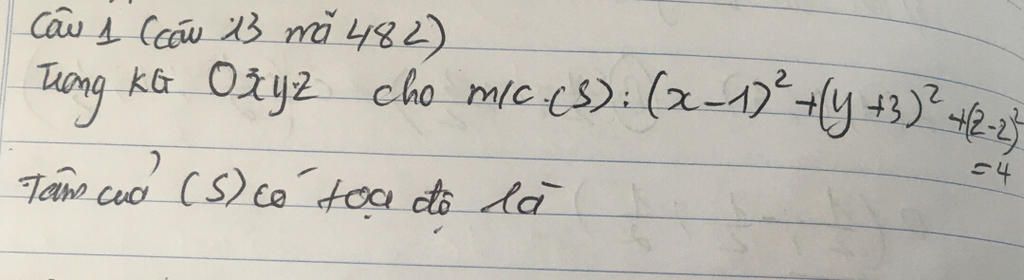 Câu 1 (câu 13 mã 482)
Trong KG Oxyz cho m/c (S): (x-1)² + (y+3)² + (z-2)²
= 4
Tâm của (S) có toạ độ là